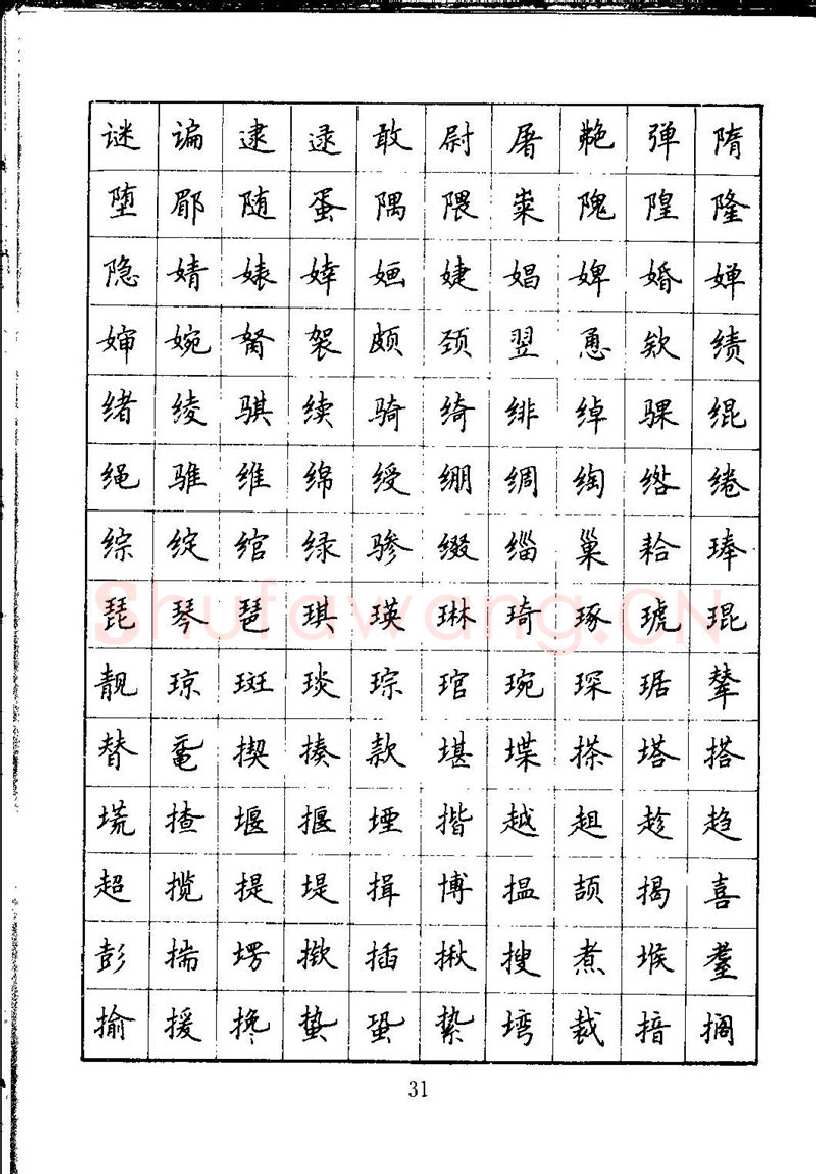 谜 谝 逮 逯 敢 尉 屠 艴 弹 隋
堕 郿 随 蛋 隅 隈 粜 隗 隍 隆
隐 婧 婊 婞 婳 婕 娼 婢 婚 婵
婶 婉 胬 袈 颇 颈 翌 恿 欸 绩
绪 绫 骐 续 骑 绮 绯 绰 骒 绲
绳 骓 维 绵 绶 绷 绸 绹 绺 绻
综 绽 绾 绿 骖 缀 缁 巢 耠 琫
琵 琴 琶 琪 瑛 琳 琦 琢 琥 琨
靓 琼 斑 琰 琮 琯 琬 琛 琚 辇
替 鼋 揳 揍 款 堪 堞 搽 塔 搭
塃 揸 堰 揠 堙 揩 越 趄 趁 趋
超 揽 提 堤 揖 博 揾 颉 揭 喜
彭 揣 塄 揿 插 揪 搜 煮 堠 耋
揄 援 搀 蛰 蛩 絷 塆 裁 揞 搁
31
Shufawang.CN